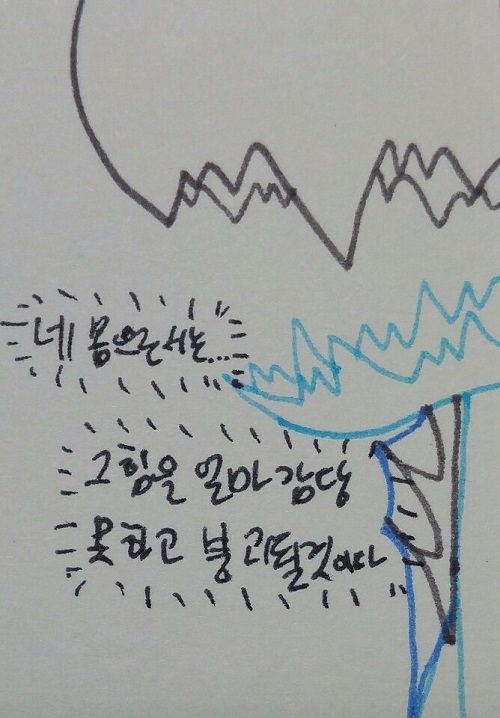 네 몸으론서는...
그힘을 얼마 감당
못하고 붕괴될것이다